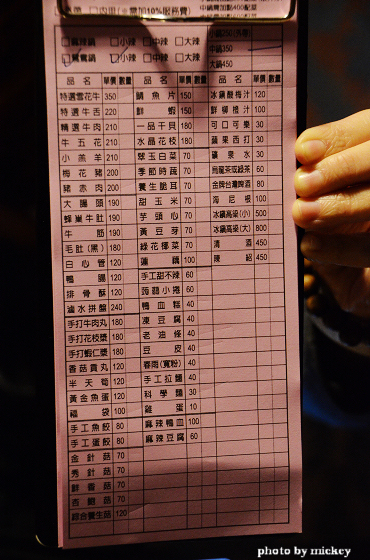 內用(需加10%服務費)
麻辣鍋 小辣 中辣 大辣
鴛鴦鍋 小辣 中辣 大辣
中鍋350
大鍋450
品名 單價 數量 品名 單價 數量 品名 單價 數量
特選雪花牛 350 鯛魚片 150 冰鎮酸梅汁 120
特選牛舌 220 鮮蝦 150 鮮柳橙汁 100
精選牛肉 210 一品干貝 180 可口可樂 30
牛五花 210 水晶花枝 180 蘋果西打 30
小羔羊 210 翠玉白菜 70 礦泉水 30
梅花豬 200 季節時蔬 70 烏龍茶或綠茶 60
豬赤肉 200 養生脆耳 70 金牌台灣啤酒 80
大腸頭 190 甜玉米 70 海尼根 100
蜂巢牛肚 190 芋頭心 70 冰鎮高粱(小) 500
牛筋 190 黃豆芽 70 冰鎮高粱(大) 800
毛肚(黑) 180 綠花椰菜 70 清酒 450
白心管 120 蓮藕 100 陳紹 450
鴨腸 120 手工甜不辣 60
排骨酥 120 蒟蒻小捲 60
滷水拼盤 240 鴨血糕 40
手打牛肉丸 180 凍豆腐 40
手打花枝漿 180 老油條 40
手打蝦仁漿 180 豆皮 40
香菇貢丸 120 春雨(寬粉) 40
半天筍 120 手工拉麵 40
黃金魚蛋 120 科學麵 30
福袋 100 雞蛋 10
手工魚餃 80 麻辣鴨血 100
手工蛋餃 80 麻辣豆腐 60
金針菇 70
秀針菇 70
鮮香菇 70
杏鮑菇 70
綜合養生菇 120
photo by mickey